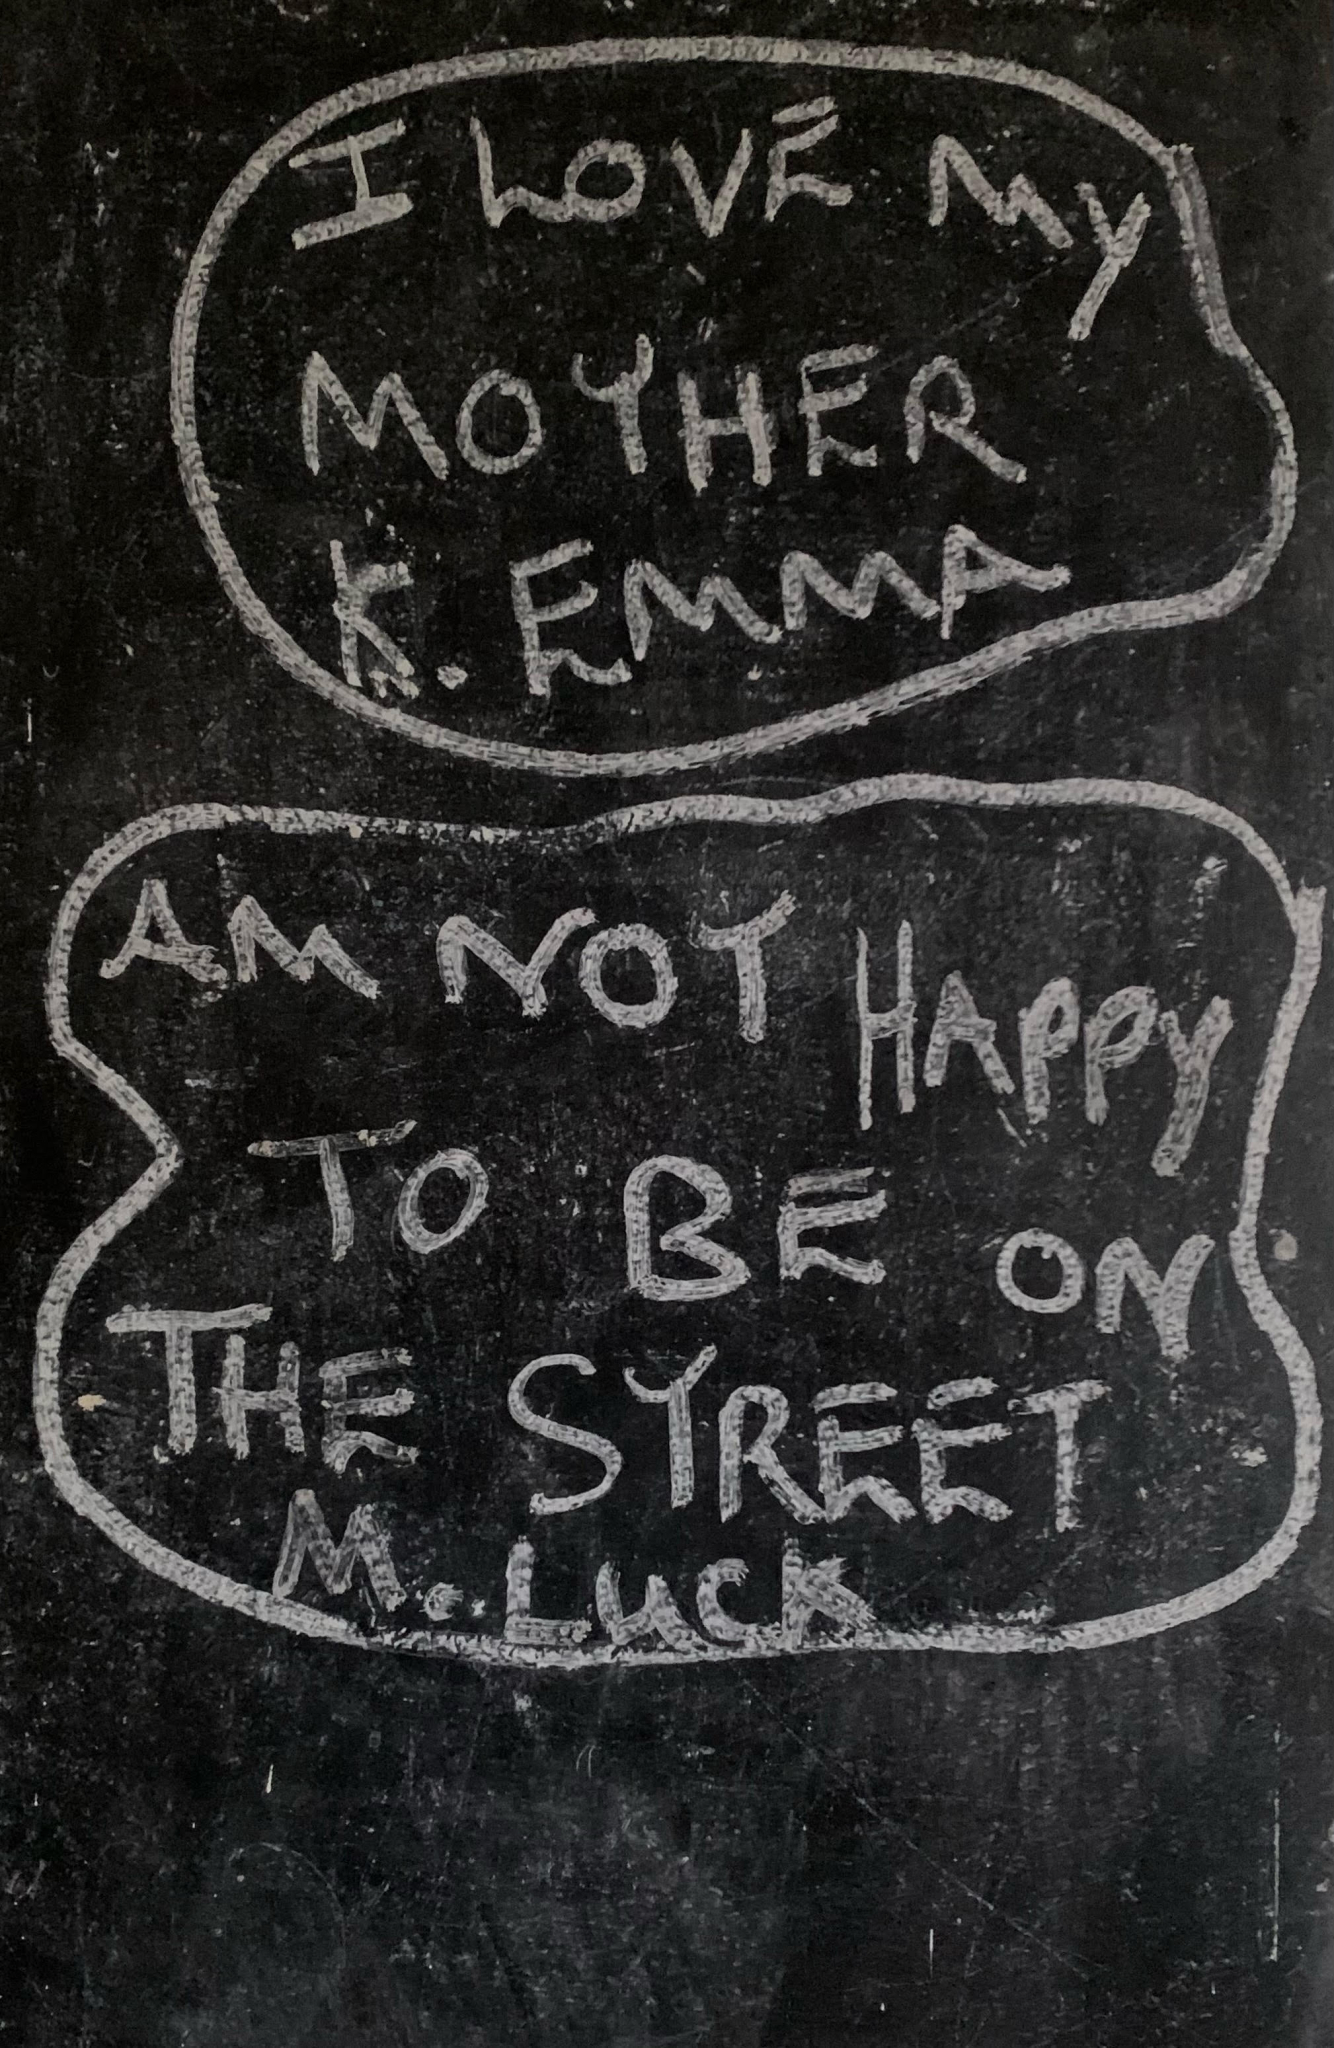 I LOVE My
MOYHER
K. EMMA
AM NOT HAPPY
TO BE ON
THE SYREET
M. LUCK